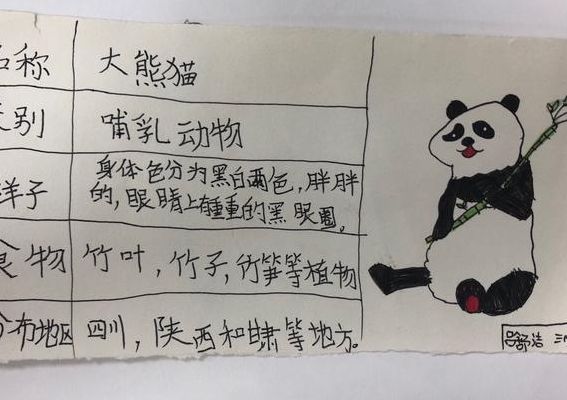 名称 大熊猫
类别 哺乳动物
样子 身体色分为黑白两色,胖胖
的,眼睛上有重重的黑眼圈。
食物 竹叶,竹子,竹笋等植物
分布地区 四川,陕西和甘肃等地方。
吕舒浩 三